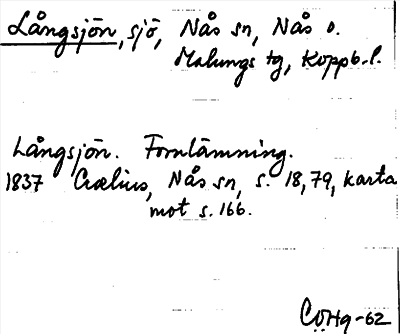 Långsjön, sjö, Nås sn, Nås o.
Malungs tg, Koppb.l.
Långsjön. Fornlämning.
1837 Crælius, Nås sn, s. 18, 79, karta
mot s. 166.
CÖHg-62